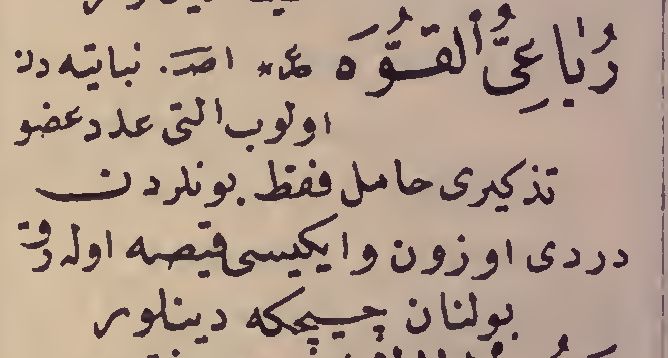 رُبَاعِىُّ ٱلقُوَّه عد* اصـ. نباتيه دن
اولوب التى عدد عضو
تذكيرى حامل فقط بونلردن
دردى اوزون وايكيسى قيصه اوله رق
بولنان چيچكه دينلور